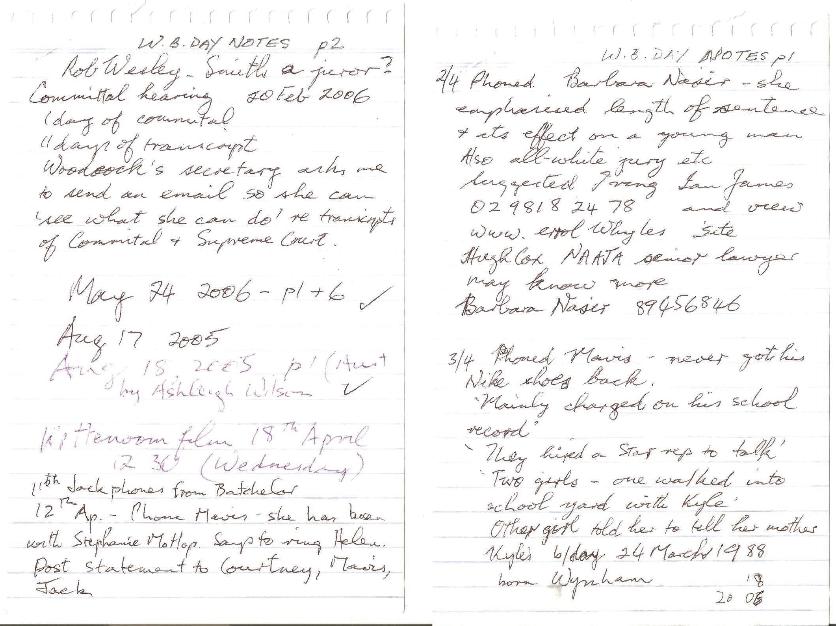 W. B. DAY NOTES p2
Rob Wesley-Smith a juror?
Committal hearing 20 Feb 2006
1 day of commital
11 days of transcript
Woodcock's secretary asks me
to send an email so she can
'see what she can do' re transcripts
of Commital + Supreme Court.
May 24 2006 - p1 + 6 ✓
Aug 17 2005
Aug 18 2005 p1 (Aust
by Ashleigh Wilson ✓
film 18th April
12 30 (Wednesday)
11th Jack phones from Batchelor
12th Ap. - Phone Mavis - she has been
with Stephanie McHop. Says to ring Helen.
Post statement to Courtney, Mavis,
Jack
W. B. DAY NOTES p1
2/4 Phoned Barbara Nasir - she
emphasised length of sentence
+ its effect on a young man
Also all-white jury etc
Suggested I ring Ian James
02 9818 24 78 and view
www. errol Whyles site
Hugh Cox NAAJA senior lawyer
may know more
Barbara Nasir 89456846
3/4 Phoned Mavis - never got his
Nike shoes back.
'Mainly charged on his school
record'
'They hired a Star rep to talk'
'Two girls - one walked into
school yard with Kyle'
Other girl told her to tell her mother
Kyle's b/day 24 March 1988
born Wynham 18
20 06